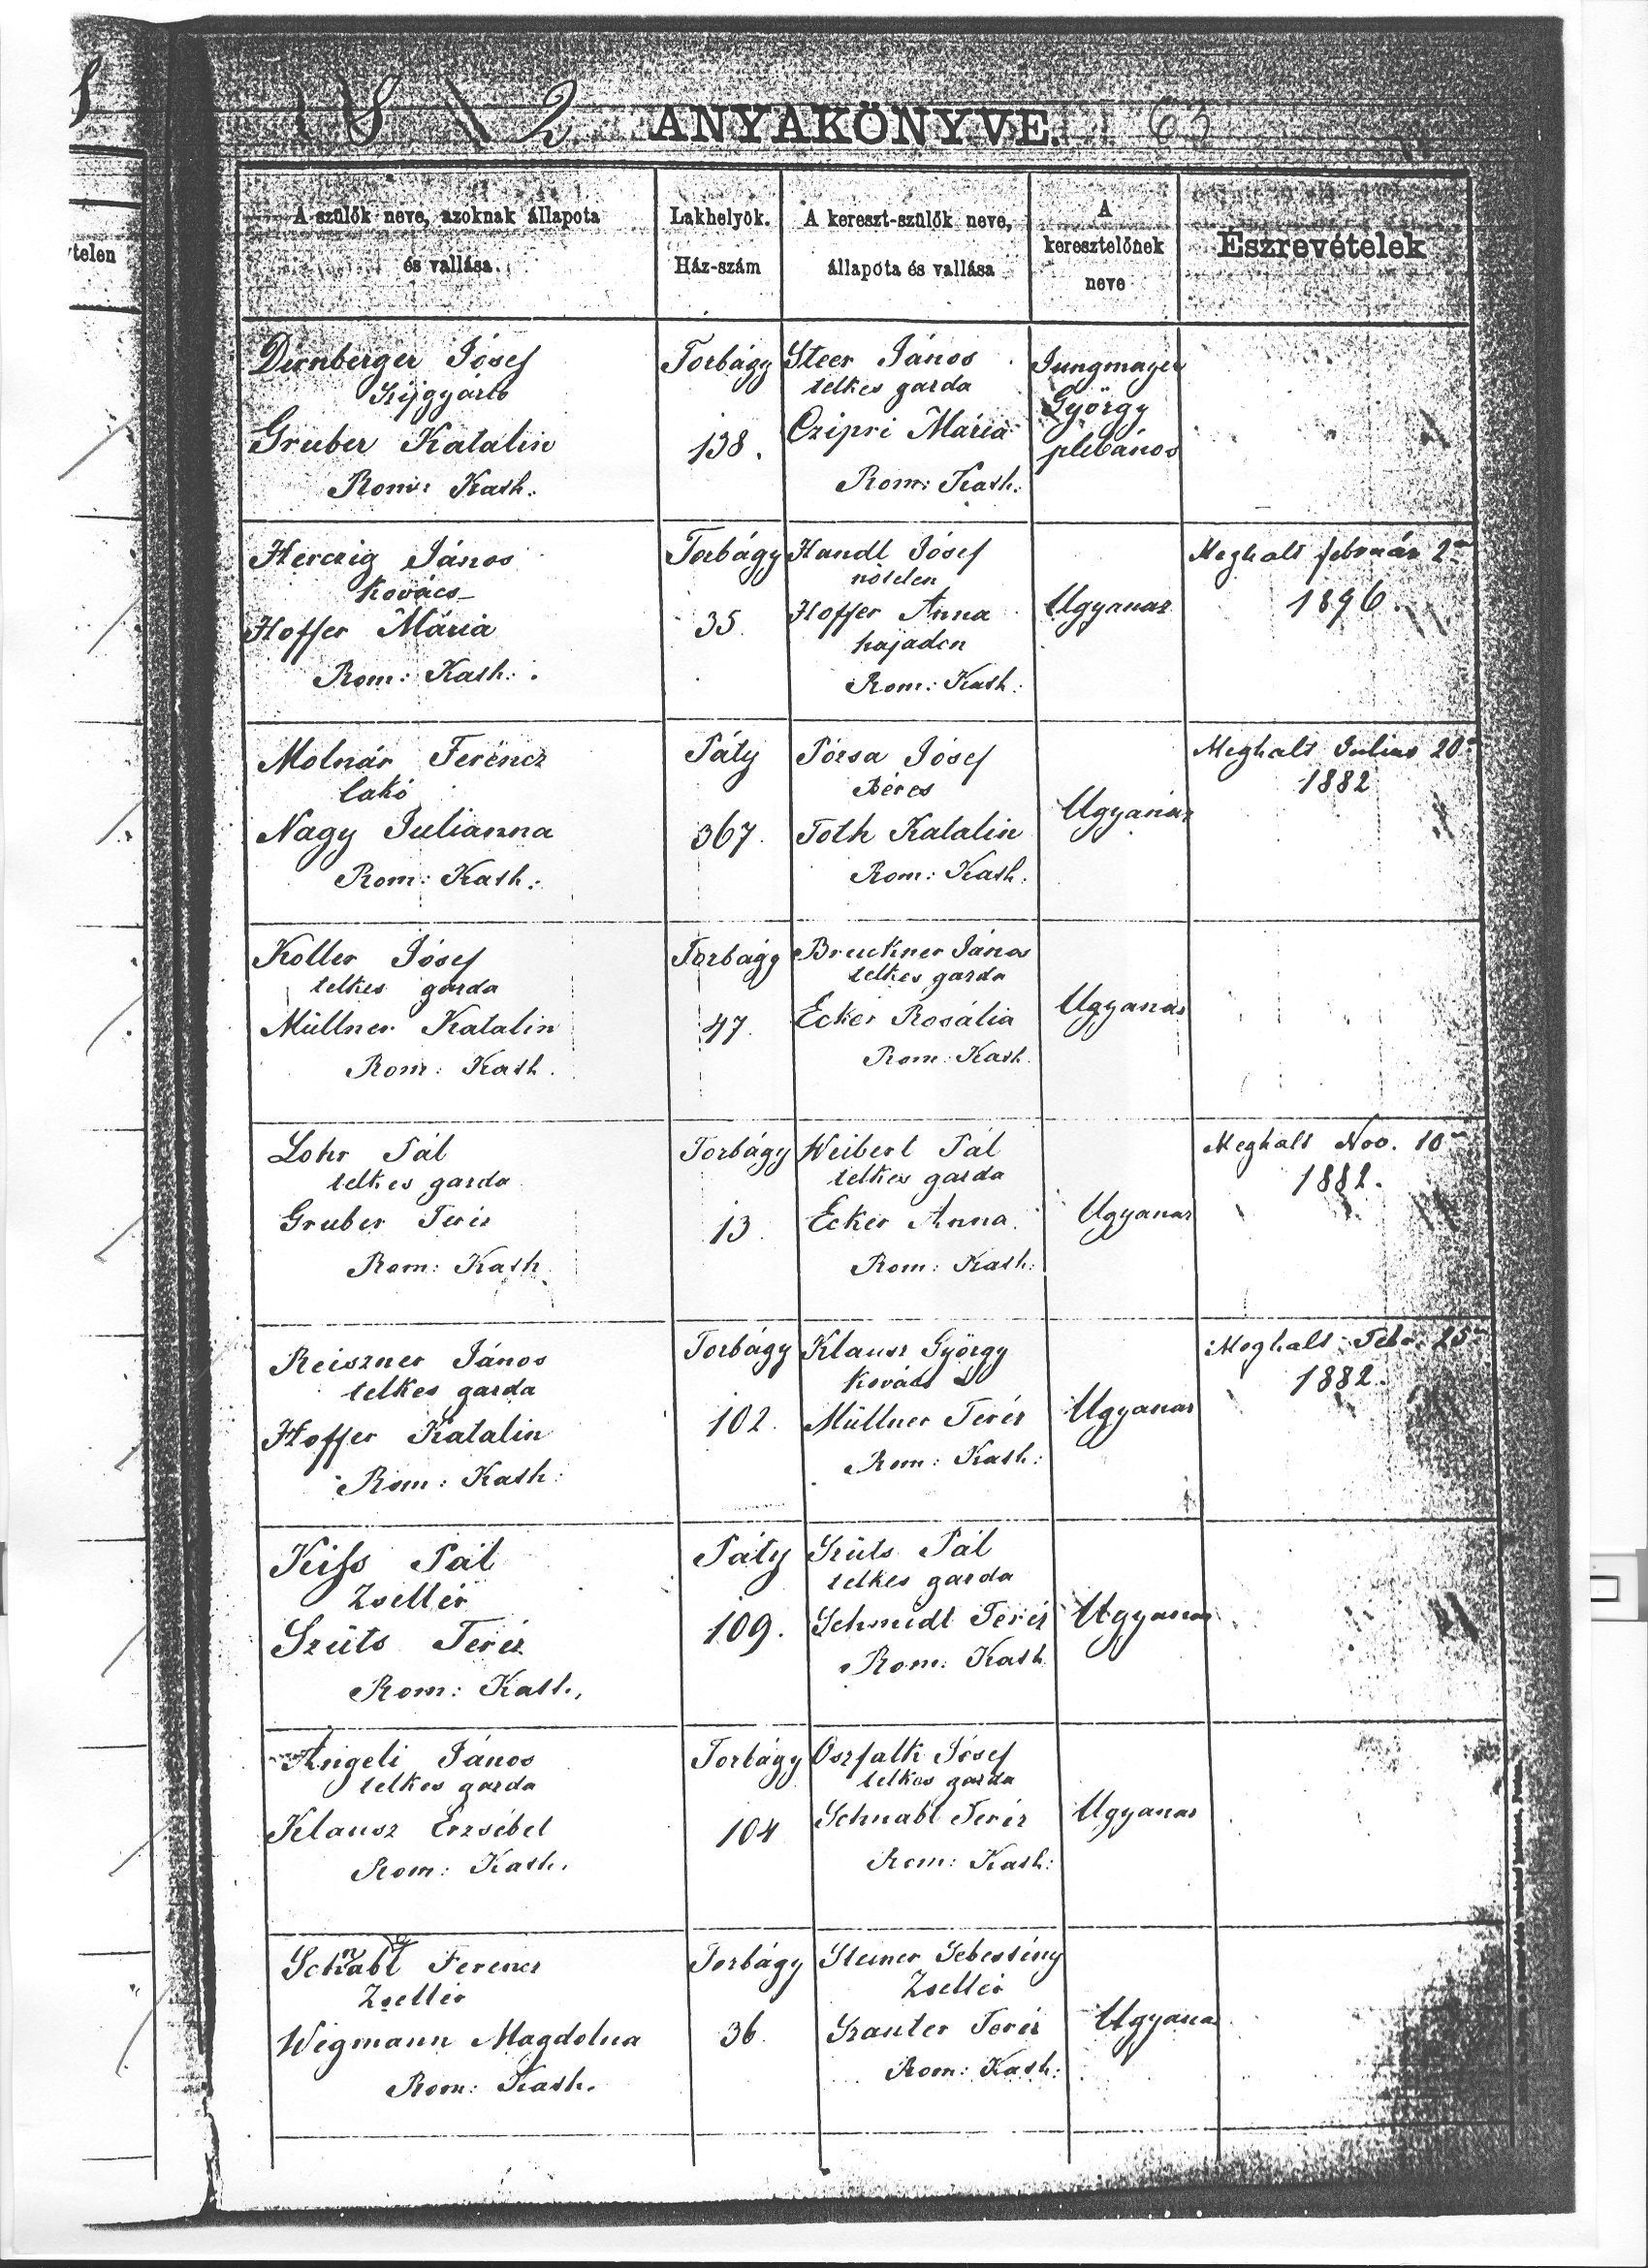 18 2 ANYAKÖNYVE. 63
A szülők neve, azoknak állapota
és vallása.
Lakhelyök.
Ház-szám
A kereszt-szülők neve,
állapota és vallása
A
keresztelőnek
neve
Észrevételek
ytelen
Dirnberger Jósef
Szijgyártó
Gruber Katalin
Rom: Kath:
Torbágy
138.
Steer János
telkes gazda
Czipri Mária
Rom: Kath:
Jungmayer
György
plébános
Herczig János
Kovács
Hoffer Mária
Rom: Kath:
Torbágy
35.
Handl Jósef
nőtelen
Hoffer Anna
hajadon
Rom: Kath:
Ugyanaz
Meghalt február 2án
1896.
Molnár Ferencz
lakó
Nagy Julianna
Rom: Kath:
Páty
367.
Pózsa Jósef
Béres
Toth Katalin
Rom: Kath.
Ugyanaz
Meghalt Julius 20án
1882
Koller Jósef
telkes gazda
Müllner Katalin
Rom: Kath.
Torbágy
47.
Bruckner János
telkes gazda
Ecker Rosália
Rom: Kath.
Ugyanaz
Lohr Pál
telkes gazda
Gruber Teréz
Rom: Kath
Torbágy
13.
Weibert Pál
telkes gazda
Ecker Anna.
Rom: Kath:
Ugyanaz
Meghalt Nov. 10án
1882.
Reiszner János
telkes gazda
Hoffer Katalin
Rom: Kath:
Torbágy
102.
Klausz György
Kovács
Müllner Teréz
Rom: Kath:
Ugyanaz
Meghalt Febr. 25án
1882.
Kiss Pál
Zsellér
Szüts Teréz
Rom: Kath.
Páty
109.
Szüts Pál
telkes gazda
Schmidt Teréz
Rom: Kath
Ugyanaz
Angeli János
telkes gazda
Klausz Erzsébet
Rom: Kath.
Torbágy
104
Oszfalk Jósef
telkes gazda
Schnabl Teréz
Rom: Kath:
Ugyanaz
Schnabl Ferencz
Zsellér
Wegmann Magdolna
Rom: Kath.
Torbágy
36.
Steiner Sebestény
Zsellér
Szauter Teréz
Rom: Kath:
Ugyanaz